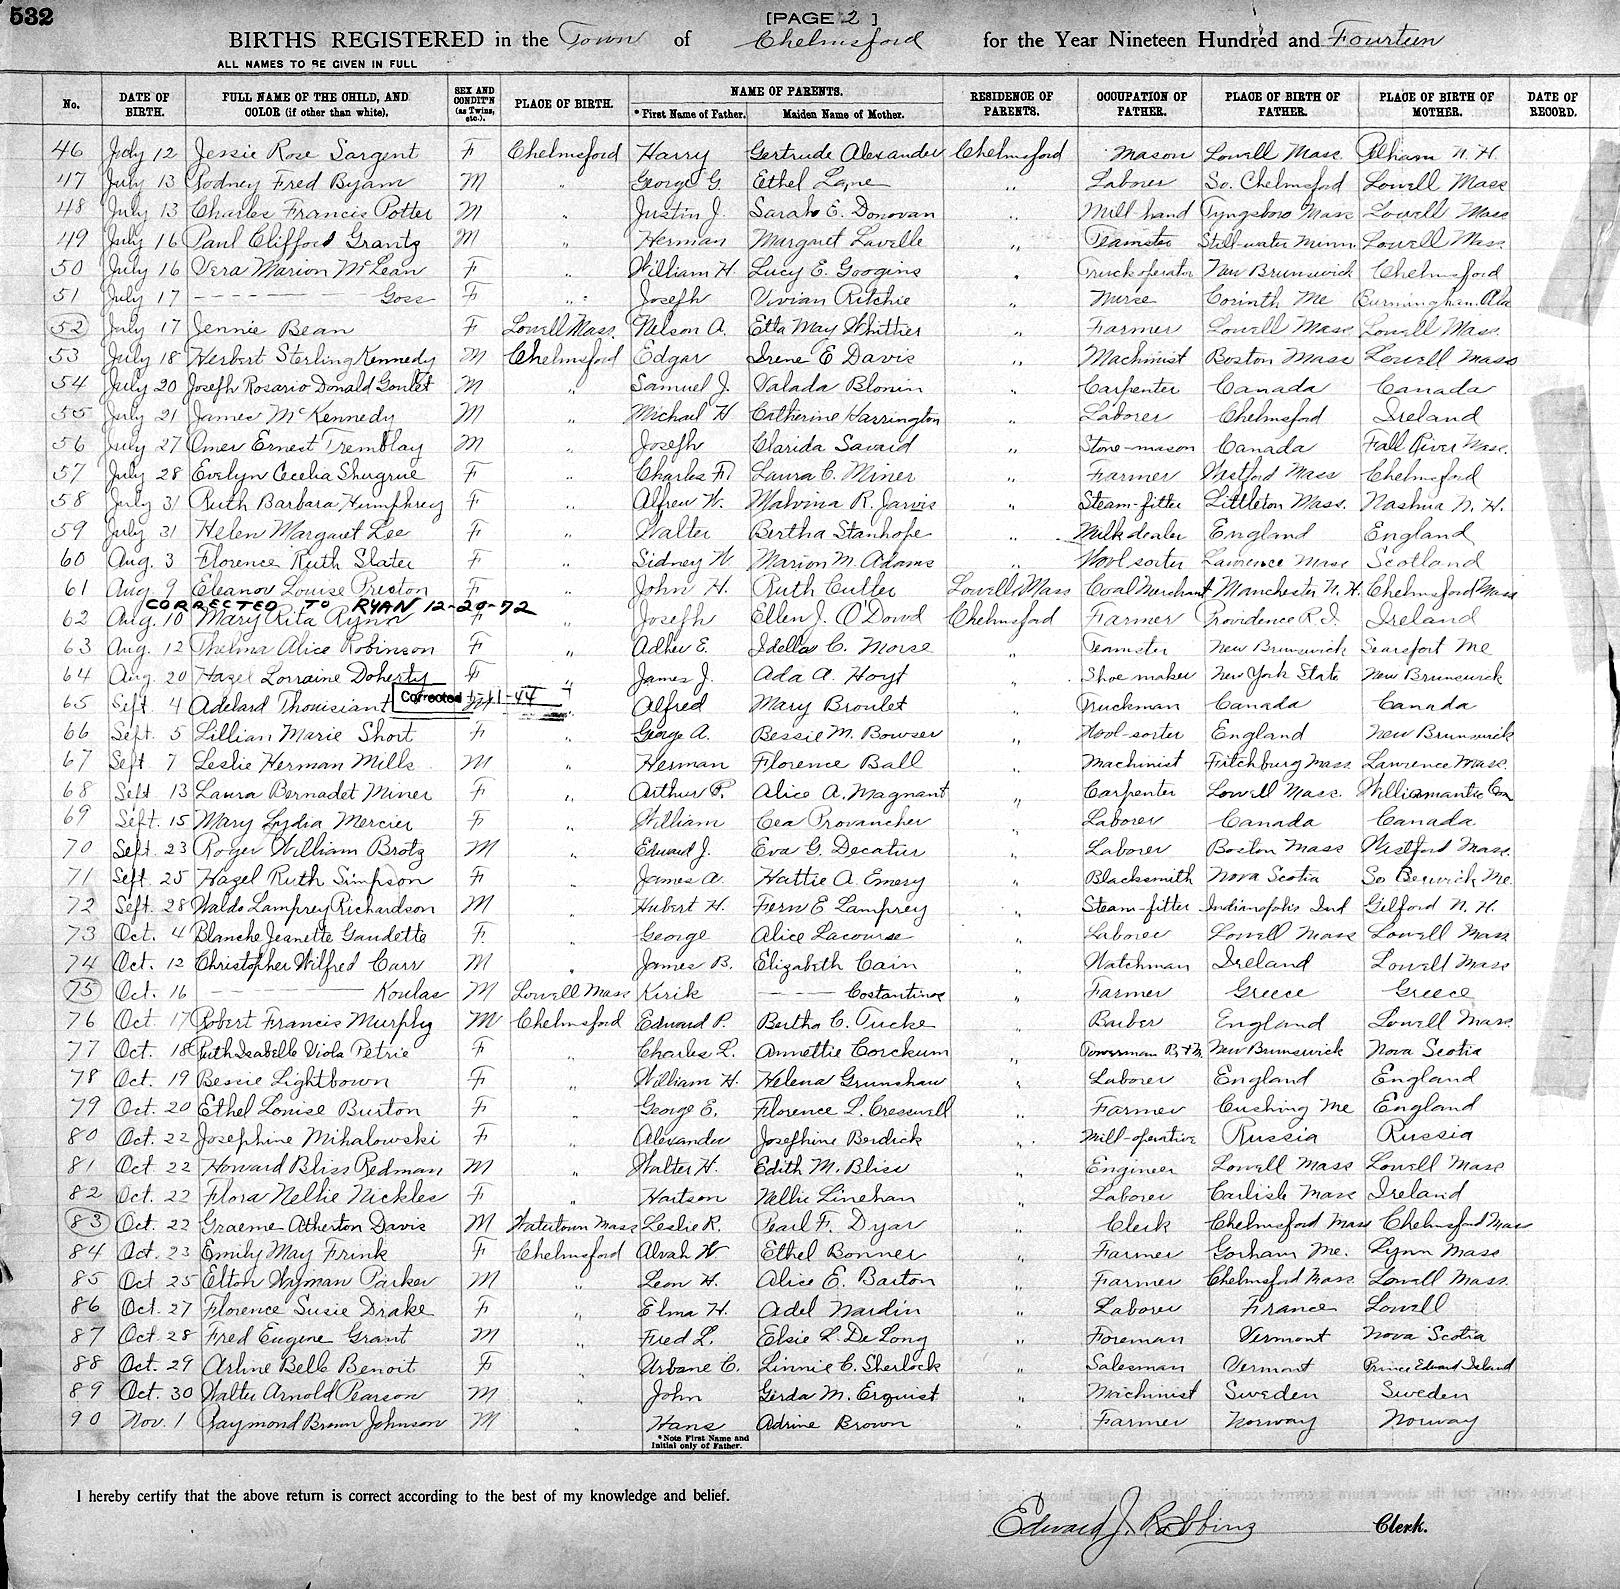 532
[PAGE 2 ]
BIRTHS REGISTERED in the Town of Chelmsford for the Year Nineteen Hundred and Fourteen
ALL NAMES TO BE GIVEN IN FULL
No. DATE OF BIRTH. FULL NAME OF THE CHILD, AND COLOR (if other than white). SEX AND CONDIT'N (as Twins, etc.). PLACE OF BIRTH. NAME OF PARENTS. * First Name of Father. Maiden Name of Mother. RESIDENCE OF PARENTS. OCCUPATION OF FATHER. PLACE OF BIRTH OF FATHER. PLACE OF BIRTH OF MOTHER. DATE OF RECORD.
46 July 12 Jessie Rose Sargent F Chelmsford Harry Gertrude Alexander Chelmsford Mason Lowell Mass. Pelham N. H.
47 July 13 Rodney Fred Byam M " George G. Ethel Lane " Laborer So. Chelmsford Lowell Mass
48 July 13 Charles Francis Potter M " Justin J. Sarah E. Donovan " Mill hand Tyngsboro Mass Lowell Mass
49 July 16 Paul Clifford Grantz M " Herman Margaret Lavelle " Teamster Still-water Minn. Lowell Mass.
50 July 16 Vera Marion McLean F " William H. Lucy E. Googins " Truck operator New Brunswick Chelmsford
51 July 17 - - - - - Goss F " Joseph Vivian Ritchie " Nurse Corinth Me Burmingham. Ala
52 July 17 Jennie Bean F Lowell Mass. Nelson A. Etta May Whittier " Farmer Lowell Mass Lowell Mass.
53 July 18 Herbert Sterling Kennedy M Chelmsford Edgar Irene E Davis " Machinist Boston Mass Lowell Mass
54 July 20 Joseph Rosario Donald Goulet M " Samuel J. Valada Blonin " Carpenter Canada Canada
55 July 21 James McKennedy M " Michael H Catherine Harrington " Laborer Chelmsford Ireland
56 July 27 Omer Ernest Tremblay M " Joseph Clarida Savard " Stone-mason Canada Fall River Mass.
57 July 28 Evelyn Cecelia Shugrue F " Charles F. Laura C. Miner " Farmer Westford Mass Chelmsford
58 July 31 Ruth Barbara Humphrey F " Alfred W. Malvina R. Jarvis " Steam-fitter Littleton Mass. Nashua N. H.
59 July 31 Helen Margaret Lee F " Walter Bertha Stanhope " Milk dealer England England
60 Aug. 3 Florence Ruth Slater F " Sidney W Marion M. Adams " Wool-sorter Lawrence Mass Scotland
61 Aug. 9 Eleanor Louise Preston F " John H. Ruth Cutler Lowell Mass Coal Merchant Manchester N. H. Chelmsford Mass
CORRECTED TO RYAN 12-29-72
62 Aug. 10 Mary Rita Rynn F " Joseph Ellen J. O'Dowd Chelmsford Farmer Providence R. I. Ireland
63 Aug. 12 Thelma Alice Robinson F " Adher E. Idella C. Morse " Teamster New Brunswick Searsport Me
64 Aug. 20 Hazel Lorraine Doherty F " James J. Ada A. Hoyt " Shoe maker New York State New Brunswick
65 Sept. 4 Adelard Thouisiant Corrected 1-11-44 M " Alfred Mary Broulet " Truckman Canada Canada
66 Sept. 5 Lillian Marie Short F " George A. Bessie M. Bowser " Wool-sorter England New Brunswick
67 Sept 7 Leslie Herman Mills M " Herman Florence Ball " Machinist Fitchburg Mass. Lawrence Mass.
68 Sept. 13 Laura Bernadet Miner F " Arthur P. Alice A. Magnant " Carpenter Lowell Mass. Williamantic Con
69 Sept. 15 Mary Lydia Mercier F " William Cea Provancher " Laborer Canada Canada
70 Sept. 23 Roger William Brotz M " Edward J. Eva G. Decatur " Laborer Boston Mass Westford Mass.
71 Sept. 25 Hazel Ruth Simpson F " James A. Hattie A. Emery " Blacksmith Nova Scotia So Berwick Me.
72 Sept. 28 Waldo Lamprey Richardson M " Hubert H. Fern E Lamprey " Steam-fitter Indianapolis Ind Gilford N. H.
73 Oct. 4 Blanche Jeanette Gaudette F. " George Alice Lacourse " Laborer Lowell Mass Lowell Mass
74 Oct. 12 Christopher Wilfred Carr M " James B. Elizabeth Cain " Watchman Ireland Lowell Mass
75 Oct. 16 - - - - - Koulas M Lowell Mass Kirik - - - Costantinos " Farmer Greece Greece
76 Oct. 17 Robert Francis Murphy M Chelmsford Edward P. Bertha C. Tucke " Barber England Lowell Mass
77 Oct. 18 Ruth Isabelle Viola Petrie F " Charles L. Annettie Corckum " Towerman B. & M. New Brunswick Nova Scotia
78 Oct. 19 Bessie Lightbown F " William H. Helena Grunshaw " Laborer England England
79 Oct. 20 Ethel Louise Burton F " George E. Florence L. Cresswell " Farmer Cushing Me England
80 Oct. 22 Josephine Mihalowski F " Alexander Josephine Berdick " Mill-operative Russia Russia
81 Oct. 22 Howard Bliss Redman M " Walter H. Edith M. Bliss " Engineer Lowell Mass Lowell Mass
82 Oct. 22 Flora Nellie Nickles F " Hartson Nellie Linehan " Laborer Carlisle Mass Ireland
83 Oct. 22 Graeme Atherton Davis M Watertown Mass Leslie R. Pearl F. Dyar " Clerk Chelmsford Mass Chelmsford Mass
84 Oct. 23 Emily May Frink F Chelmsford Alvah W Ethel Bonner " Farmer Gorham Me. Lynn Mass
85 Oct 25 Elton Wyman Parker M " Leon H. Alice E. Barton " Farmer Chelmsford Mass. Lowell Mass.
86 Oct. 27 Florence Susie Drake F " Elma H. Adel Nardin " Laborer France Lowell
87 Oct. 28 Fred Eugene Grant M " Fred L. Elsie L De Long " Foreman Vermont Nova Scotia
88 Oct. 29 Arline Belle Benoit F " Urbane C. Linnie C. Sherlock " Salesman Vermont Prince Edward Island
89 Oct. 30 Walter Arnold Pearson M " John Gerda M. Erquist " Machinist Sweden Sweden
90 Nov. 1 Raymond Brown Johnson M " Hans Adrine Brown " Farmer Norway Norway
*Note First Name and Initial only of Father.
I hereby certify that the above return is correct according to the best of my knowledge and belief.
Edward J. Robbins Clerk.